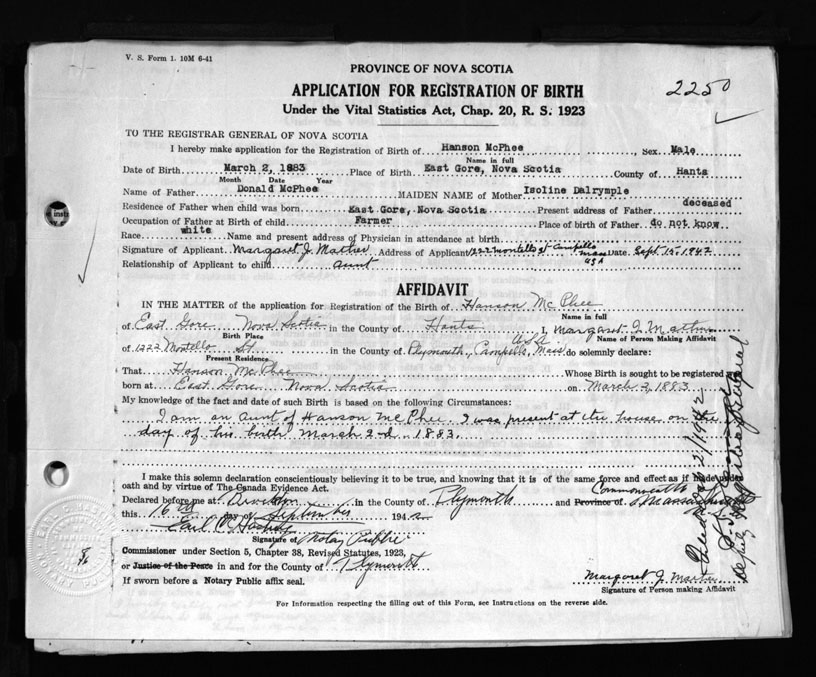 V. S. Form 1. 10M 6-41
PROVINCE OF NOVA SCOTIA
APPLICATION FOR REGISTRATION OF BIRTH
2250
Under the Vital Statistics Act, Chap. 20, R. S. 1923
TO THE REGISTRAR GENERAL OF NOVA SCOTIA
I hereby make application for the Registration of Birth of Hanson McPhee Sex Male
Name in full
Date of Birth March 2, 1883 Place of Birth East Gore, Nova Scotia County of Hants
Month Date Year
Name of Father Donald McPhee MAIDEN NAME of Mother Isoline Dalrymple
Residence of Father when child was born East Gore, Nova Scotia Present address of Father deceased
Occupation of Father at Birth of child Farmer Place of birth of Father do not know
Race white Name and present address of Physician in attendance at birth
Signature of Applicant Margaret J. Address of Applicant 1222 Montello St Campello Mass USA Date Sept 15-1942
Relationship of Applicant to child aunt
AFFIDAVIT
IN THE MATTER of the application for Registration of the Birth of Hanson McPhee
Name in full
of East Gore Nova Scotia in the County of Hants I, Margaret J.
Birth Place Name of Person Making Affidavit
of 1222 Montello St. in the County of Plymouth, Campello, Mass USA do solemnly declare:
Present Residence
That Hanson McPhee Whose Birth is sought to be registered
born at East Gore Nova Scotia on March 2, 1883
My knowledge of the fact and date of such Birth is based on the following Circumstances:
I am an aunt of Hanson McPhee. I was present at the house on the
day of his birth March 2nd 1883.
I make this solemn declaration conscientiously believing it to be true, and knowing that it is of the same force and effect as if made under
oath and by virtue of The Canada Evidence Act.
Declared before me at Brockton in the County of Plymouth and Province of Commonwealth of Massachusetts
this 16th day of September 1942
Earl
Signature of Notary Public
Commissioner under Section 5, Chapter 38, Revised Statutes, 1923,
or Justice of the Peace in and for the County of Plymouth
If sworn before a Notary Public affix seal.
Margaret J.
Signature of Person making Affidavit
For Information respecting the filling out of this Form, see Instructions on the reverse side.